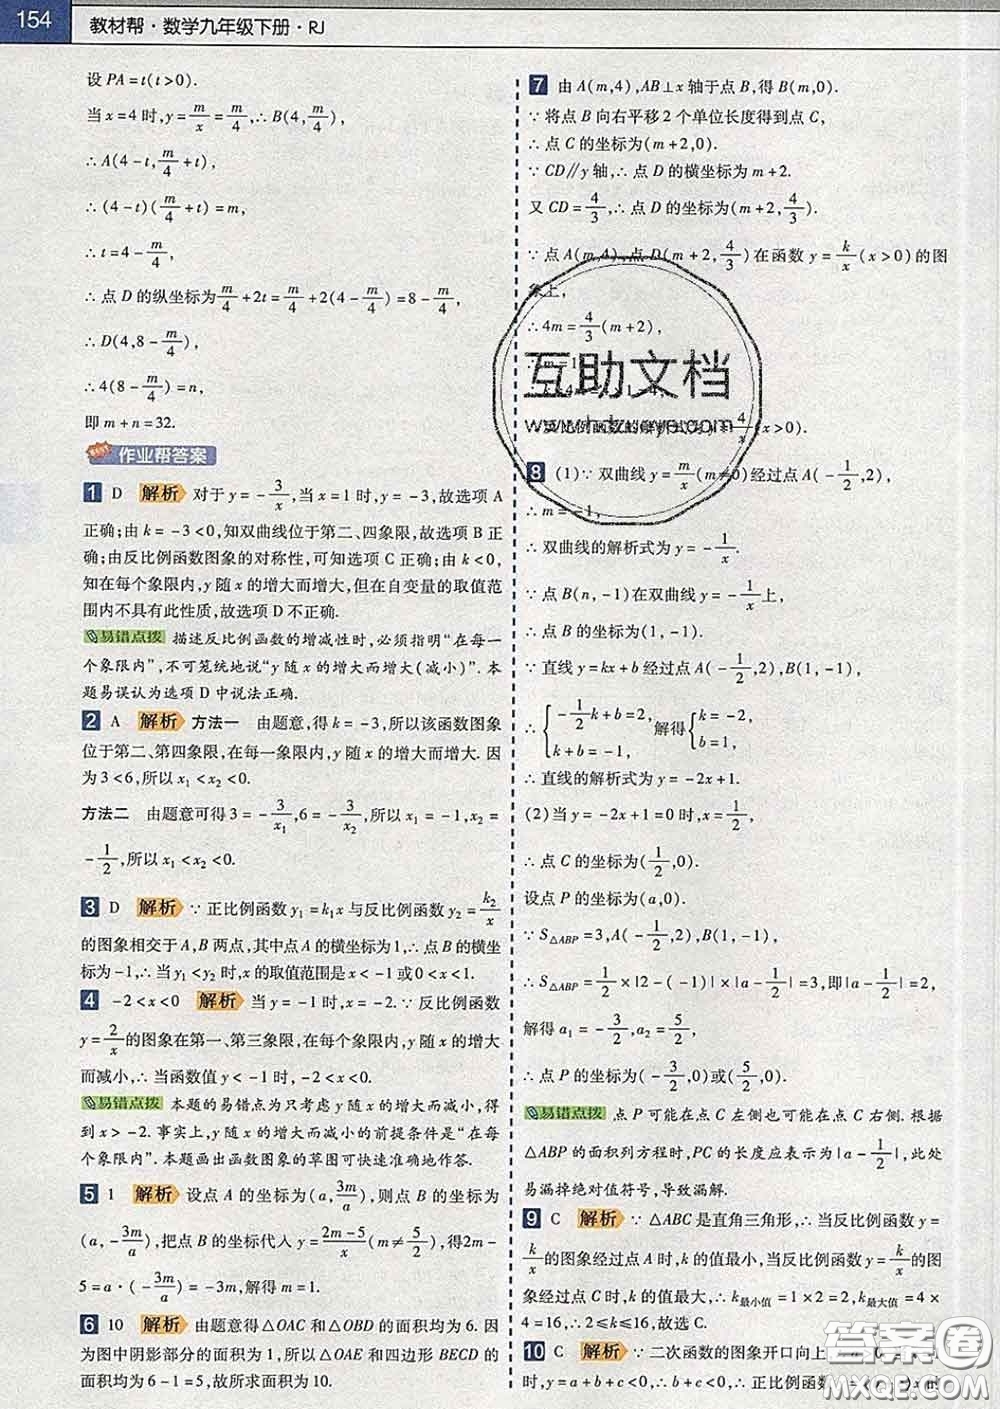 154 教材帮·数学九年级下册·RJ
设 PA=t(t>0).
当 x=4 时, y=m/x=m/4, ∴ B(4, m/4),
∴ A(4-t, m/4+t),
∴ (4-t)(m/4+t)=m,
∴ t=4-m/4,
∴ 点 D 的纵坐标为 m/4+2t=m/4+2(4-m/4)=8-m/4,
∴ D(4,8-m/4),
∴ 4(8-m/4)=n,
即 m+n=32.
作业帮答案
1 D 解析 对于 y=-3/x, 当 x=1 时, y=-3, 故选项 A
正确;由 k=-3<0,知双曲线位于第二、四象限,故选项 B 正
确;由反比例函数图象的对称性,可知选项 C 正确;由 k<0,
知在每个象限内,y 随 x 的增大而增大,但在自变量的取值范
围内不具有此性质,故选项 D 不正确.
易错点拨 描述反比例函数的增减性时,必须指明“在每一
个象限内”,不可笼统地说“y 随 x 的增大而增大(减小)”. 本
题易误认为选项 D 中说法正确.
2 A 解析 方法一 由题意,得 k=-3,所以该函数图象
位于第二、第四象限,在每一象限内,y 随 x 的增大而增大. 因
为 3<6,所以 x₁<x₂<0.
方法二 由题意可得 3=-3/x₁, 6=-3/x₂, 所以 x₁=-1, x₂=
-1/2, 所以 x₁<x₂<0.
3 D 解析 ∵ 正比例函数 y₁=k₁x 与反比例函数 y₂=k₂/x
的图象相交于 A,B 两点,其中点 A 的横坐标为 1,∴ 点 B 的横坐
标为-1,∴ 当 y₁<y₂ 时,x 的取值范围是 x<-1 或 0<x<1.
4 -2<x<0 解析 当 y=-1 时,x=-2. ∵ 反比例函数
y=2/x 的图象在第一、第三象限,在每个象限内,y 随 x 的增大
而减小,∴ 当函数值 y<-1 时,-2<x<0.
易错点拨 本题的易错点为只考虑 y 随 x 的增大而减小,得
到 x>-2. 事实上,y 随 x 的增大而减小的前提条件是“在每
个象限内”. 本题画出函数图象的草图可快速准确地作答.
5 1 解析 设点 A 的坐标为(a, 3m/a), 则点 B 的坐标为
(a, -3m/a), 把点 B 的坐标代入 y=(2m-5)/x (m≠5/2), 得 2m-
5=a·(-3m/a)=-3m, 解得 m=1.
6 10 解析 由题意得△OAC 和△OBD 的面积均为 6. 因
为图中阴影部分的面积为 1,所以△OAE 和四边形 BECD 的
面积均为 6-1=5,故所求面积为 10.
7 由 A(m,4),AB⊥x 轴于点 B,得 B(m,0).
∵ 将点 B 向右平移 2 个单位长度得到点 C,
∴ 点 C 的坐标为(m+2,0).
∵ CD∥y 轴,∴ 点 D 的横坐标为 m+2.
又 CD=4/3, ∴ 点 D 的坐标为(m+2, 4/3).
∵ 点 A(m,4),点 D(m+2, 4/3) 在函数 y=k/x (x>0) 的图
象上,
∴ 4m=4/3(m+2),
∴ m=1
反比例函数的解析式为 y=4/x (x>0).
8 (1)∵ 双曲线 y=m/x (m≠0) 经过点 A(-1/2,2),
∴ m=-1,
∴ 双曲线的解析式为 y=-1/x.
∵ 点 B(n,-1)在双曲线 y=-1/x 上,
∴ 点 B 的坐标为(1,-1).
∵ 直线 y=kx+b 经过点 A(-1/2,2),B(1,-1),
∴ { -1/2k+b=2, k+b=-1, 解得 { k=-2, b=1,
∴ 直线的解析式为 y=-2x+1.
(2)当 y=-2x+1=0 时,x=1/2,
∴ 点 C 的坐标为(1/2,0).
设点 P 的坐标为(a,0).
∵ S△ABP=3,A(-1/2,2),B(1,-1),
∴ S△ABP=1/2×|2-(-1)|×|a-1/2|=3,即|a-1/2|=2,
解得 a₁=-3/2,a₂=5/2,
∴ 点 P 的坐标为(-3/2,0)或(5/2,0).
易错点拨 点 P 可能在点 C 左侧也可能在点 C 右侧. 根据
△ABP 的面积列方程时,PC 的长度应表示为|a-1/2|,此处
易漏掉绝对值符号,导致漏解.
9 C 解析 ∵ △ABC 是直角三角形,∴ 当反比例函数 y=
k/x 的图象经过点 A 时,k 的值最小,当反比例函数 y=k/x 的图
象经过点 C 时,k 的值最大,∴ k最小值=1×2=2, k最大值=4×
4=16,∴ 2≤k≤16,故选 C.
10 C 解析 ∵ 二次函数的图象开口向上
时,y=a+b+c<0,∴ a+b+c<0,∴ 正比例函数
互助文档
答案圈
MXQE.COM